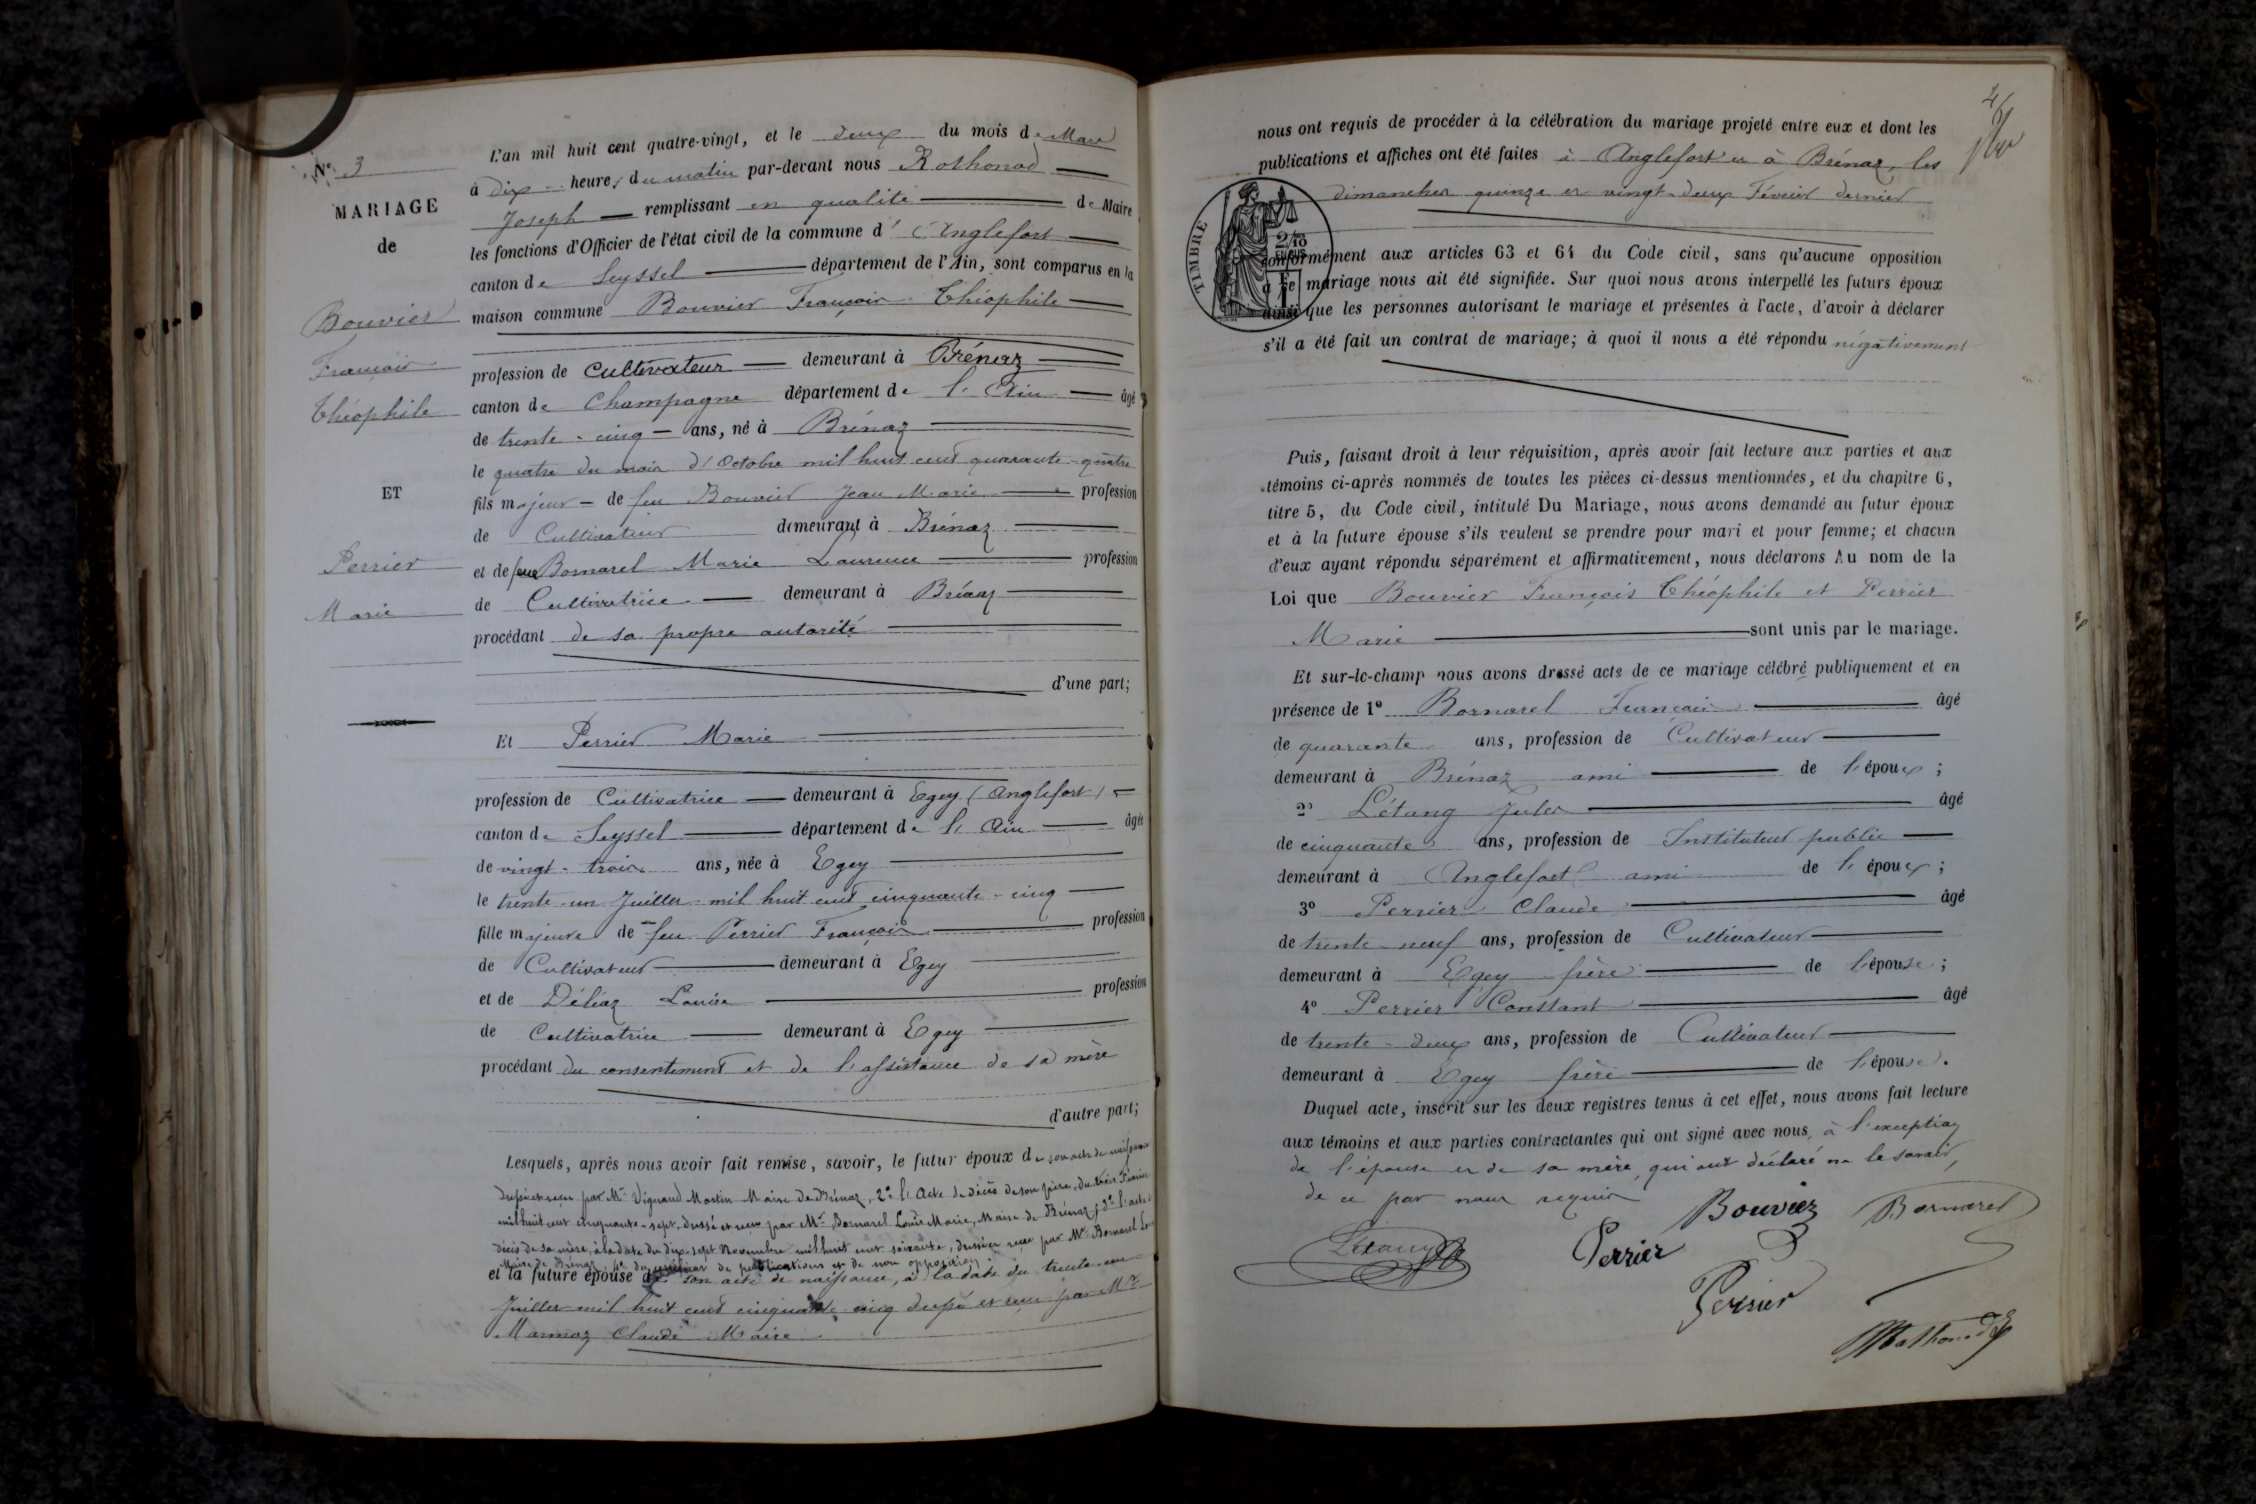 N° 3
MARIAGE
de
Bouvier
François
Théophile
ET
Perrier
Marie
L'an mil huit cent quatre-vingt, et le deux du mois de Mars
à dix heures du matin par-devant nous Rothonod
Joseph remplissant en qualité de Maire
les fonctions d'Officier de l'état civil de la commune d' Anglefort
canton de Seyssel département de l'Ain, sont comparus en la
maison commune Bouvier François Théophile
profession de Cultivateur demeurant à Brénaz
canton de Champagne département de l'Ain âgé
de trente-cinq ans, né à Brénaz
le quatre du mois d'Octobre mil huit cent quarante-quatre
fils majeur de feu Bouvier Jean Marie profession
de Cultivateur demeurant à Brénaz
et de feue Bornarel Marie Laurence profession
de Cultivatrice demeurant à Brénaz
procédant de sa propre autorité
d'une part;
Et Perrier Marie
profession de Cultivatrice demeurant à Egey (Anglefort)
canton de Seyssel département de l'Ain âgée
de vingt-trois ans, née à Egey
le trente-un Juillet mil huit cent cinquante-cinq
fille majeure de feu Perrier François profession
de Cultivateur demeurant à Egey
et de Déléaz Louise profession
de Cultivatrice demeurant à Egey
procédant du consentement et de l'assistance de sa mère
d'autre part;
Lesquels, après nous avoir fait remise, savoir, le futur époux de son acte de naissance
par Mr Vignaud Martin Maire de Brénaz, 2° l'Acte de décès de son père, du trois Février
mil huit cent cinquante-sept, dressé et reçu par Mr Bornarel Louis Marie, Maire de Brénaz, 3° l'acte de
décès de sa mère, à la date du dix-sept Novembre mil huit cent soixante, dressé et reçu par Mr Bornarel
Maire de Brénaz, de publications et de non opposition
et la future épouse de son acte de naissance, à la date du trente-un
Juillet mil huit cent cinquante-cinq dressé et reçu par Mr
Marmoz Claude Maire
nous ont requis de procéder à la célébration du mariage projeté entre eux et dont les
publications et affiches ont été faites à Anglefort et à Brénaz, les
dimanches quinze et vingt-deux Février dernier
TIMBRE
2/10
EN SUS
conformément aux articles 63 et 64 du Code civil, sans qu'aucune opposition
à ce mariage nous ait été signifiée. Sur quoi nous avons interpellé les futurs époux
ainsi que les personnes autorisant le mariage et présentes à l'acte, d'avoir à déclarer
s'il a été fait un contrat de mariage; à quoi il nous a été répondu négativement
Puis, faisant droit à leur réquisition, après avoir fait lecture aux parties et aux
témoins ci-après nommés de toutes les pièces ci-dessus mentionnées, et du chapitre 6,
titre 5, du Code civil, intitulé Du Mariage, nous avons demandé au futur époux
et à la future épouse s'ils veulent se prendre pour mari et pour femme; et chacun
d'eux ayant répondu séparément et affirmativement, nous déclarons Au nom de la
Loi que Bouvier François Théophile et Perrier
Marie sont unis par le mariage.
Et sur-le-champ nous avons dressé acte de ce mariage célébré publiquement et en
présence de 1° Bornarel François âgé
de quarante ans, profession de Cultivateur
demeurant à Brénaz ami de l'époux;
2° Létang Jules âgé
de cinquante ans, profession de Instituteur public
demeurant à Anglefort ami de l'époux;
3° Perrier Claude âgé
de trente-neuf ans, profession de Cultivateur
demeurant à Egey frère de l'épouse;
4° Perrier Constant âgé
de trente-deux ans, profession de Cultivateur
demeurant à Egey frère de l'épouse.
Duquel acte, inscrit sur les deux registres tenus à cet effet, nous avons fait lecture
aux témoins et aux parties contractantes qui ont signé avec nous, à l'exception
de l'épouse et de sa mère, qui ont déclaré ne le savoir,
de ce par nous requis
Bouvier Bornarel
Létang Perrier
Perrier
Rothonod